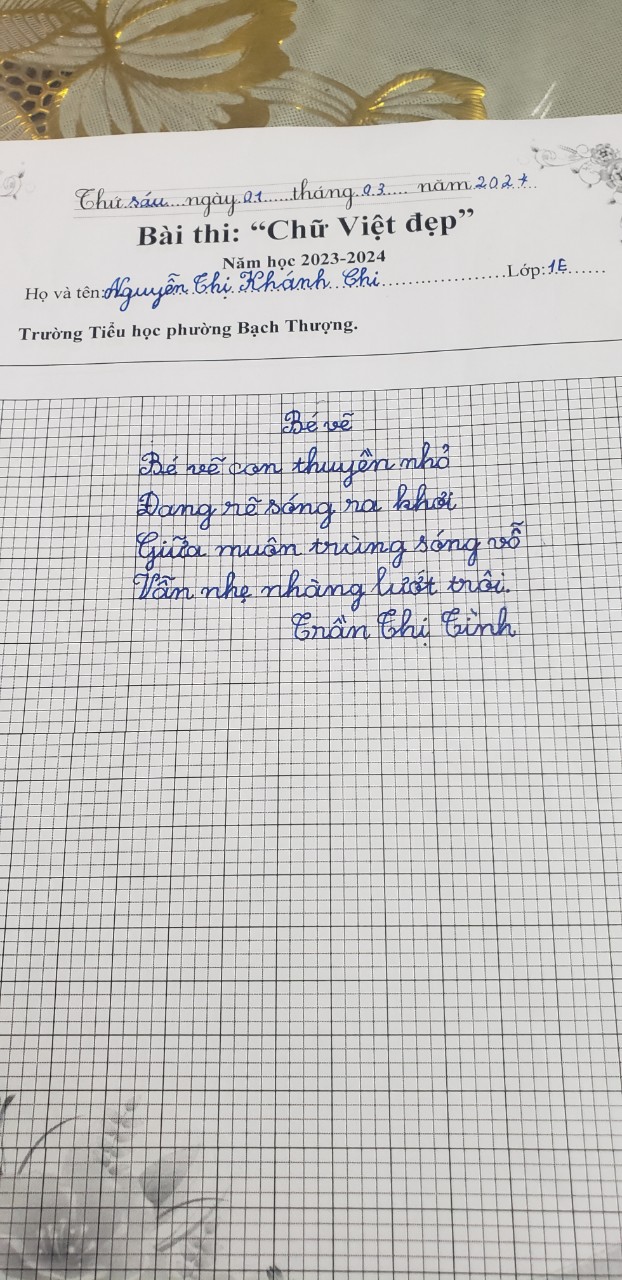 Thứ sáu ngày 01 tháng 03 năm 2024
Bài thi: “Chữ Việt đẹp”
Năm học 2023-2024
Họ và tên: Nguyễn Thị Khánh Chi Lớp: 1E
Trường Tiểu học phường Bạch Thượng.
Bé vẽ
Bé vẽ con thuyền nhỏ
Đang rẽ sóng ra khơi
Giữa muôn trùng sóng vỗ
Vẫn nhẹ nhàng lướt trôi.
Trần Thị Tình